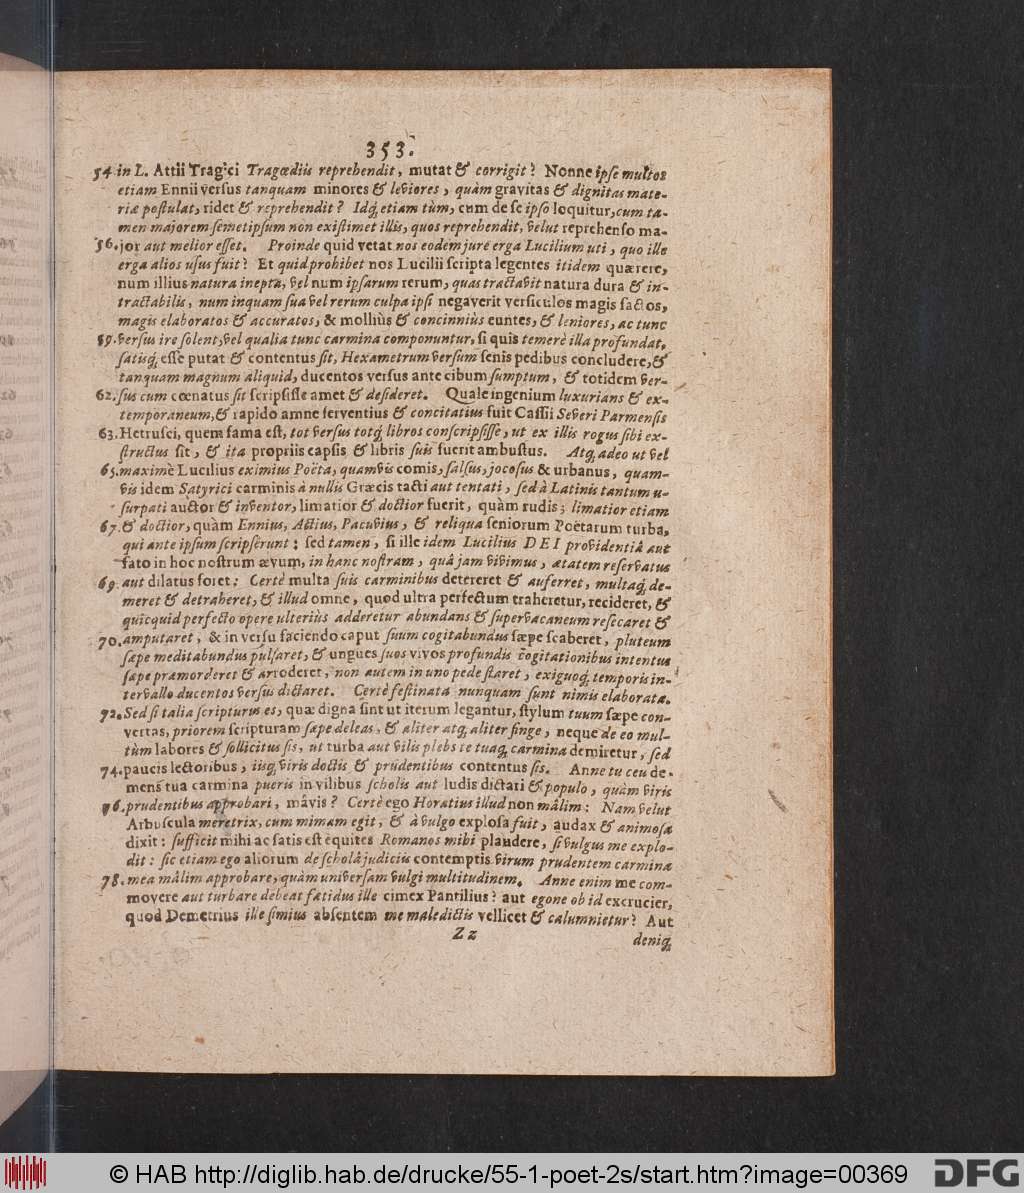 353.
54. in L. Attii Tragici Tragœdiis reprehendit, mutat & corrigit? Nonne ipſe multos
etiam Ennii verſus tanquam minores & leviores, quàm gravitas & dignitas mate-
riæ poſtulat, ridet & reprehendit? Idq́; etiam tùm, cum de ſe ipſo loquitur, cum ta-
men majorem ſemetipſum non exiſtimet illis, quos reprehendit, velut reprehenſo ma-
56. jor aut melior eſſet. Proinde quid vetat nos eodem jure erga Lucilium uti, quo ille
erga alios uſus fuit? Et quid prohibet nos Lucilii ſcripta legentes itidem quærere,
num illius natura inepta, vel num ipſarum rerum, quas tractavit natura dura & in-
tractabilis, num inquam ſua vel rerum culpa ipſi negaverit verſiculos magis factos,
magis elaboratos & accuratos, & molliùs & concinniùs euntes, & leniores, ac tunc
59. verſus ire ſolent, vel qualia tunc carmina componuntur, ſi quis temerè illa profundat,
ſatisq́; eſſe putat & contentus ſit, Hexametrum verſum ſenis pedibus concludere, &
tanquam magnum aliquid, ducentos verſus ante cibum ſumptum, & totidem ver-
62. ſus cum cœnatus ſit ſcripſiſſe amet & deſideret. Quale ingenium luxurians & ex-
temporaneum, & rapido amne ferventius & concitatius fuit Caſſii Severi Parmenſis
63. Hetruſci, quem fama eſt, tot verſus totq́; libros conſcripſiſſe, ut ex illis rogus ſibi ex-
ſtructus ſit, & ita propriis capſis & libris ſuis fuerit ambuſtus. Atq́; adeo ut vel
65. maximè Lucilius eximius Poëta, quamvis comis, ſalſus, jocoſus & urbanus, quam-
vis idem Satyrici carminis à nullis Græcis tacti aut tentati, ſed à Latinis tantum u-
ſurpati auctor & inventor, limatior & doctior fuerit, quàm rudis; limatior etiam
67. & doctior, quàm Ennius, Actius, Pacuvius, & reliqua ſeniorum Poëtarum turba,
qui ante ipſum ſcripſerunt: ſed tamen, ſi ille idem Lucilius DEI providentiâ aut
fato in hoc noſtrum ævum, in hanc noſtram, quâ jam vivimus, ætatem reſervatus
69. aut dilatus foret: Certè multa ſuis carminibus detereret & auferret, multaq́; de-
meret & detraheret, & illud omne, quod ultra perfectum traheretur, recideret, &
quicquid perfecto opere ulteriùs adderetur abundans & ſupervacaneum reſecaret &
70. amputaret, & in verſu faciendo caput ſuum cogitabundus ſæpe ſcaberet, pluteum
ſæpe meditabundus pulſaret, & ungues ſuos vivos profundis cogitationibus intentus
ſæpe præmorderet & arroderet, non autem in uno pede ſtaret, exiguoq́; temporis in-
tervallo ducentos verſus dictaret. Certè feſtinata nunquam ſunt nimis elaborata.
72. Sed ſi talia ſcripturus es, quæ digna ſint ut iterum legantur, ſtylum tuum ſæpe con-
vertas, priorem ſcripturam ſæpe deleas, & aliter atq́; aliter finge, neque de eo mul-
tùm labores & ſollicitus ſis, ut turba aut vilis plebs te tuaq́; carmina demiretur, ſed
74. paucis lectoribus, iisq́; viris doctis & prudentibus contentus ſis. Anne tu ceu de-
mens tua carmina pueris in vilibus ſcholis aut ludis dictari & populo, quàm viris
76. prudentibus approbari, mâvis? Certè ego Horatius illud non mâlim: Nam velut
Arbuſcula meretrix, cum mimam egit, & à vulgo exploſa fuit, audax & animoſa
dixit: ſufficit mihi ac ſatis eſt equites Romanos mihi plaudere, ſi vulgus me explo-
dit: ſic etiam ego aliorum de ſcholâ judiciis contemptis virum prudentem carmina
78. mea mâlim approbare, quàm univerſam vulgi multitudinem. Anne enim me com-
movere aut turbare debeat fœtidus ille cimex Pantilius? aut egone ob id excrucier,
quod Demetrius ille ſimius abſentem me maledictis vellicet & calumnietur? Aut
Zz
deniq́;
© HAB http://diglib.hab.de/drucke/55-1-poet-2s/start.htm?image=00369
DFG